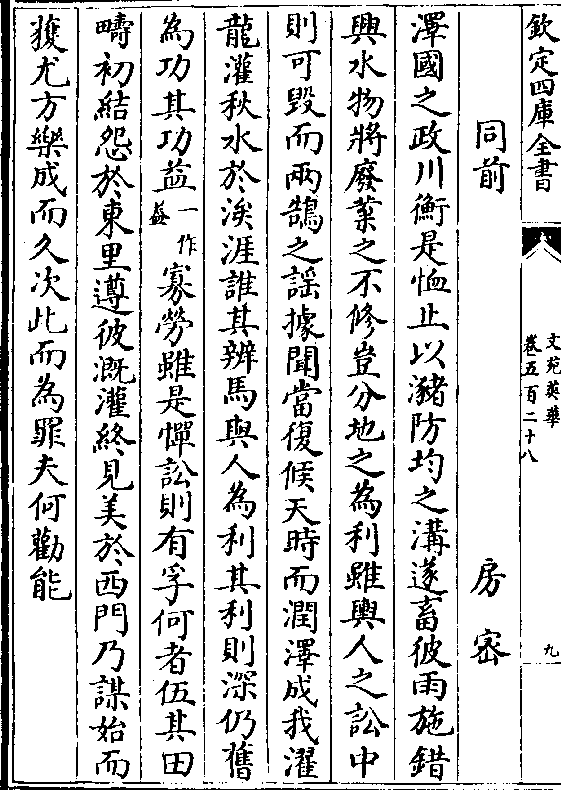 欽定四庫全書
文苑英華
卷五百二十八
九
同前
房密
澤國之政川衡是恤止以瀦防均之溝遂畜彼雨施錯
興水物將廢棄之不修豈分地之為利雖輿人之訟中
則可毀而兩鵠之謡據聞當復候天時而潤澤成我濯
龍灌秋水於涘涯誰其辨馬與人為利其利則深仍舊
為功其功益一作葢寡勞雖是憚訟則有孚何者伍其田
疇初結怨於東里遵彼溉灌終見美於西門乃謀始而
獲尤方樂成而久次此而為罪夫何勸能